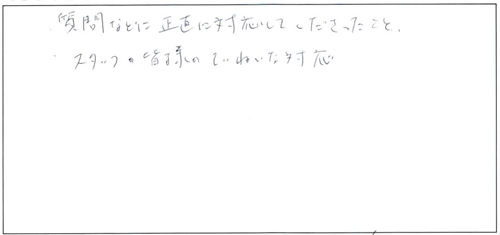 質問などに正直に対応してくださったこと、
スタッフの皆様のていねいな対応